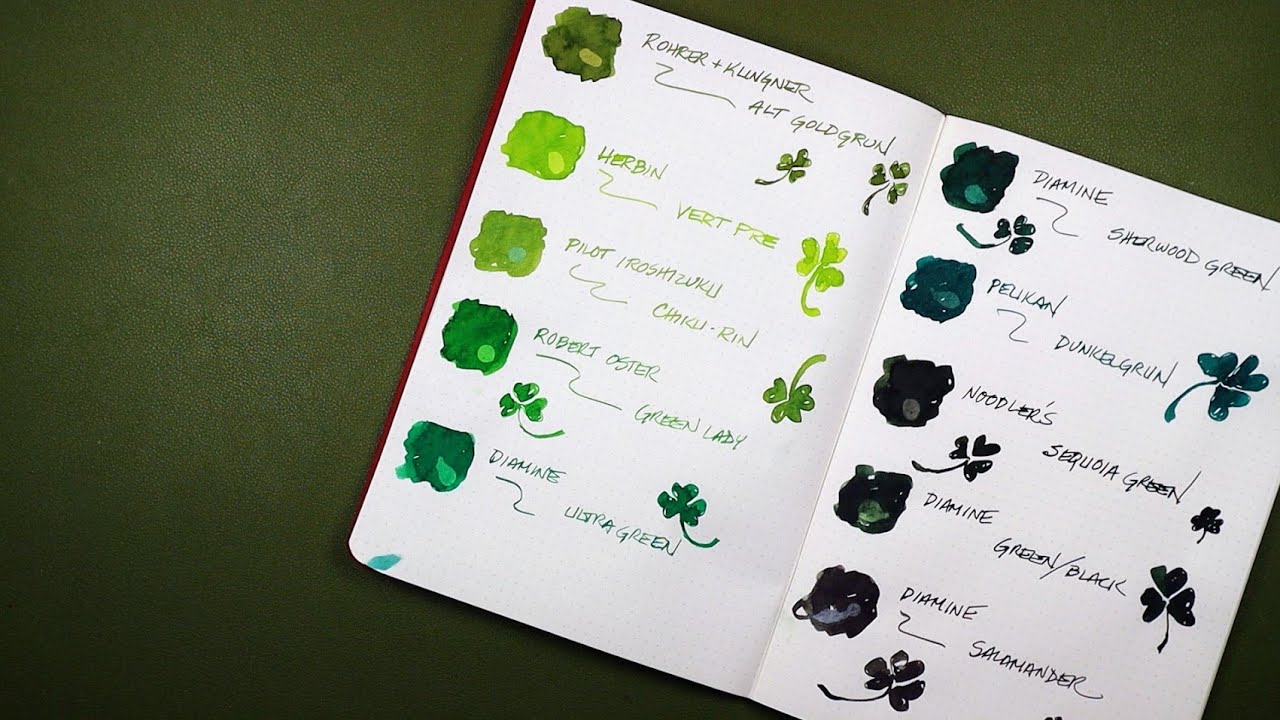 ROHRER + KLINGNER
ALT GOLDGRUN
HERBIN
VERT PRE
PILOT IROSHIZUKU
CHIKU-RIN
ROBERT OSTER
GREEN LADY
DIAMINE
ULTRA GREEN
DIAMINE
SHERWOOD GREEN
PELIKAN
DUNKELGRUN
NOODLER'S
SEQUOIA GREEN
DIAMINE
GREEN/BLACK
DIAMINE
SALAMANDER